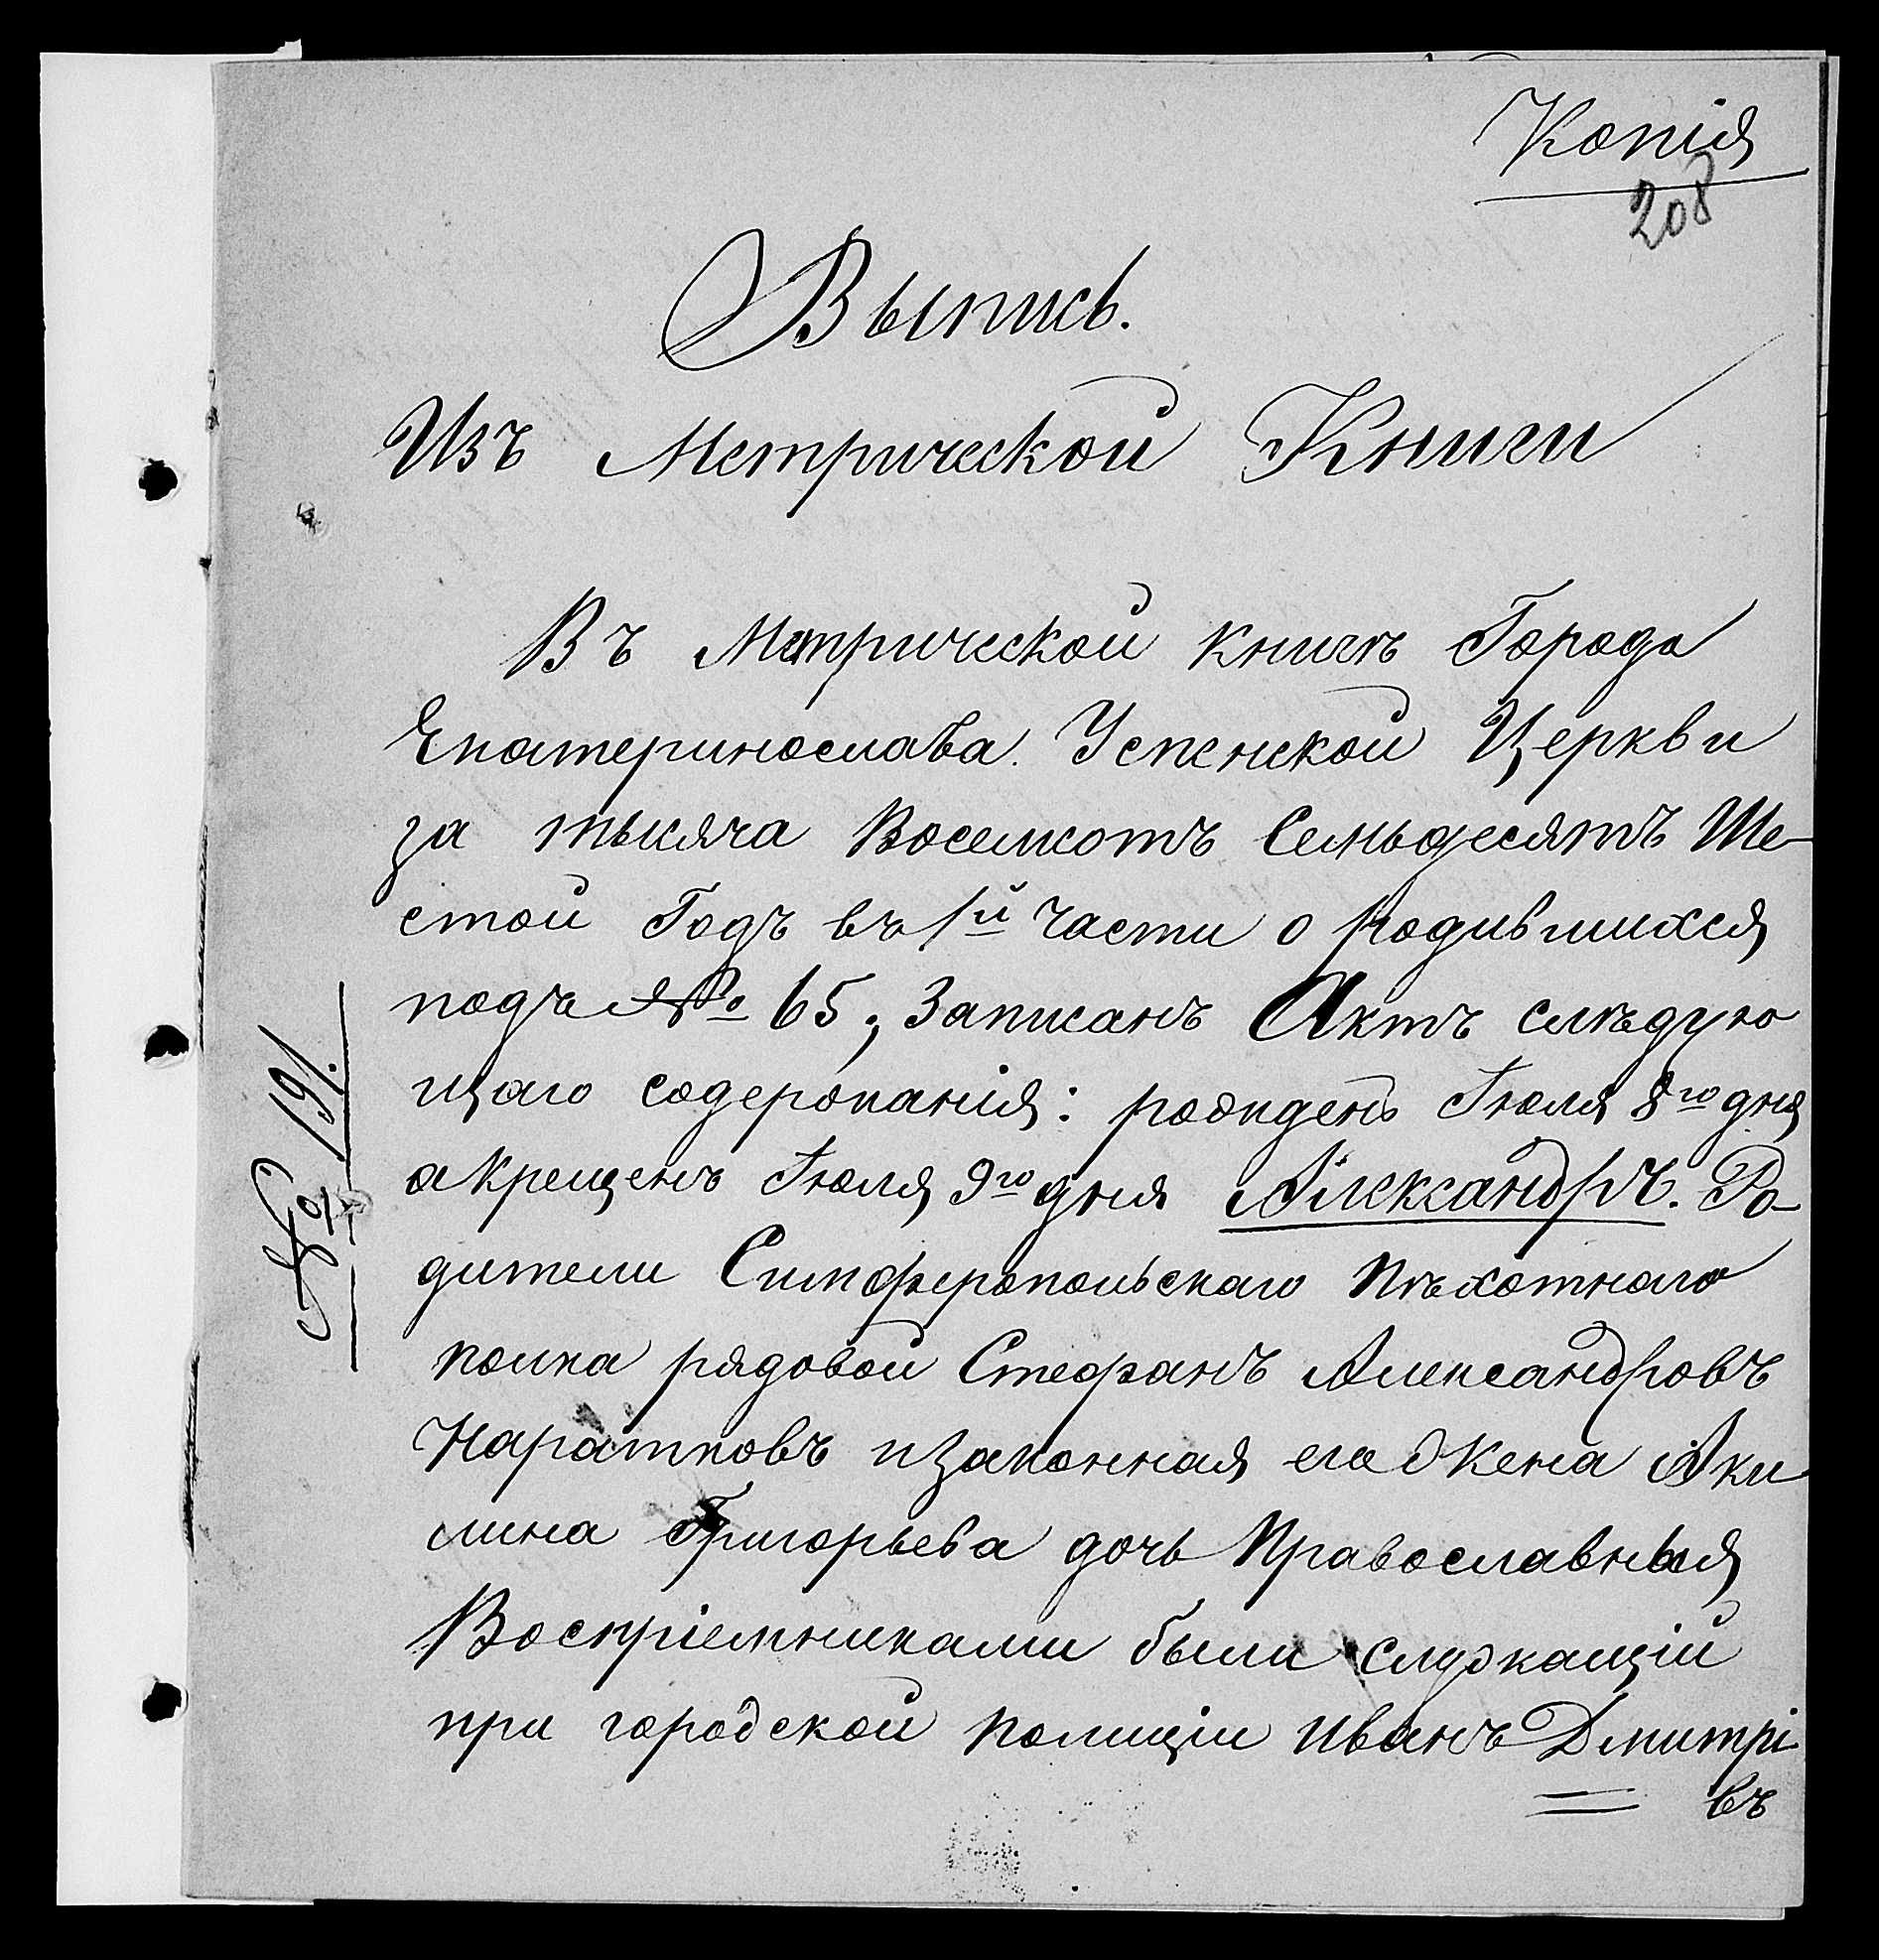 Копія
208
Выпись.
Изъ Метрической Книги
Въ Метрической книгѣ Города
Екатеринослава. Успенской Церкви
за тысяча Восемсотъ Семьдесятъ Ше-
стой Годъ въ 1й части о Родившихся
подъ № 65, Записанъ Актъ слѣдую
щаго содержанія: рожденъ Іюля 8го дня
а крещенъ Іюля 9го дня Александръ. Ро-
дители Симферопольскаго Пѣхотнаго
полка рядовой Стефанъ Александровъ
Каратковъ и законная его жена Аки
лина Григорьева дочь Православныя
Воспріемниками были служащій
при городской полиціи Иванъ Дмитрі
въ
№ 191.